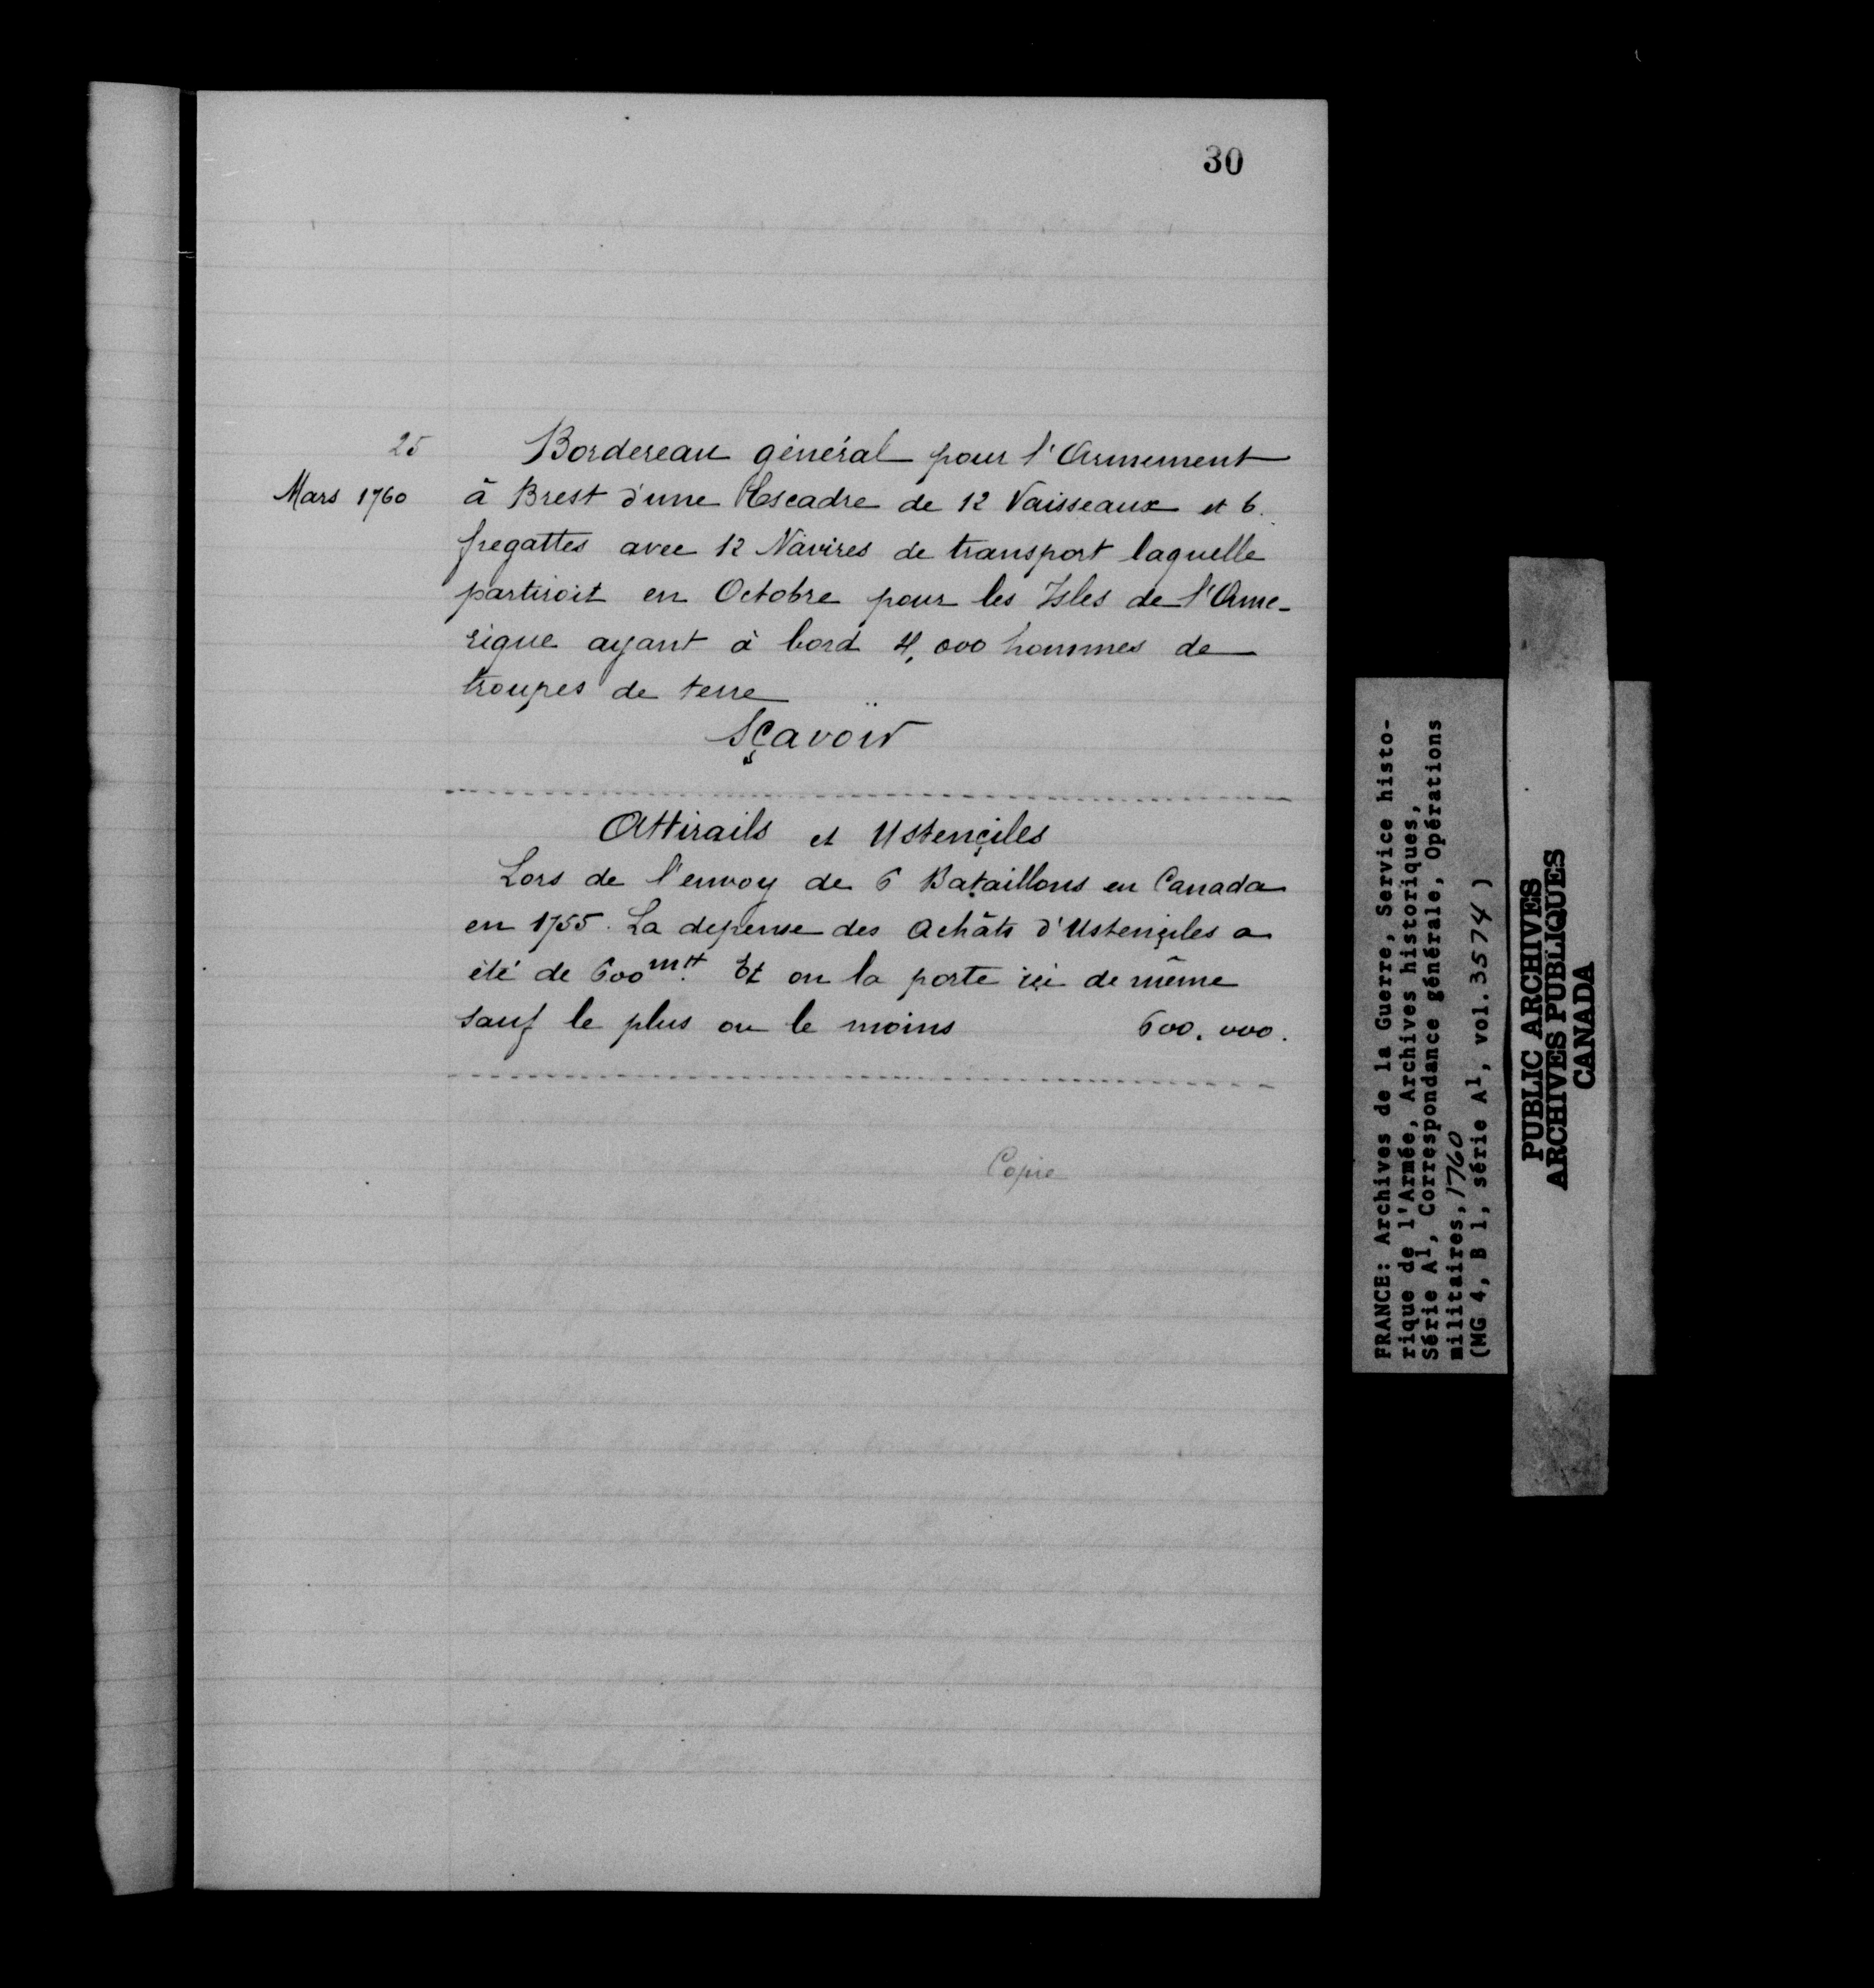 30
25
Mars 1760
Bordereau général pour l'Armement
à Brest d'une Escadre de 12 Vaisseaux et 6.
fregattes avec 12 Navires de transport laquelle
partiroit en Octobre pour les Isles de l'Ame-
rique ayant à bord 4,000 hommes de
troupes de terre
Sçavoir
Attirails et Ustençiles
Lors de l'envoy de 6 Bataillons en Canada
en 1755. La depense des Achâts d'Ustençiles a
été de 600 m.tt Et on la porte içi de même
sauf le plus ou le moins 600.000.
Copie
FRANCE: Archives de la Guerre, Service histo-
rique de l'Armée, Archives historiques,
Série A1, Correspondance générale, Opérations
militaires, 1760
(MG 4, B 1, série A1, vol. 3574)
PUBLIC ARCHIVES
ARCHIVES PUBLIQUES
CANADA